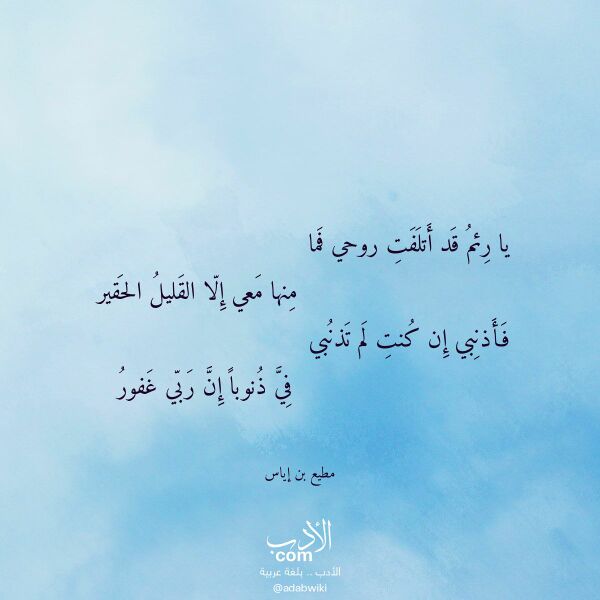 يا رِئمُ قَد أَتلَفَتِ روحي فَما
مِنها مَعي إِلّا القَليلُ الحَقير
فَأَذنِبي إِن كُنتِ لَم تَذنُبي
فِيَّ ذُنوباً إِنَّ رَبّي غَفورُ
مطيع بن إياس
الأدب
com
الأدب .. بلغة عربية
@adabwiki